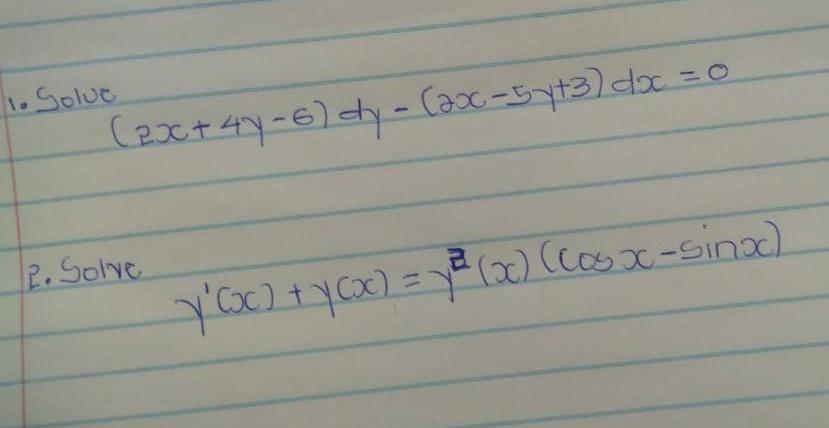 1. Solve
(2x+4y-6) dy - (2x-5y+3) dx = 0
2. Solve
y'(x) + y(x) = y²(x) (cos x - sin x)